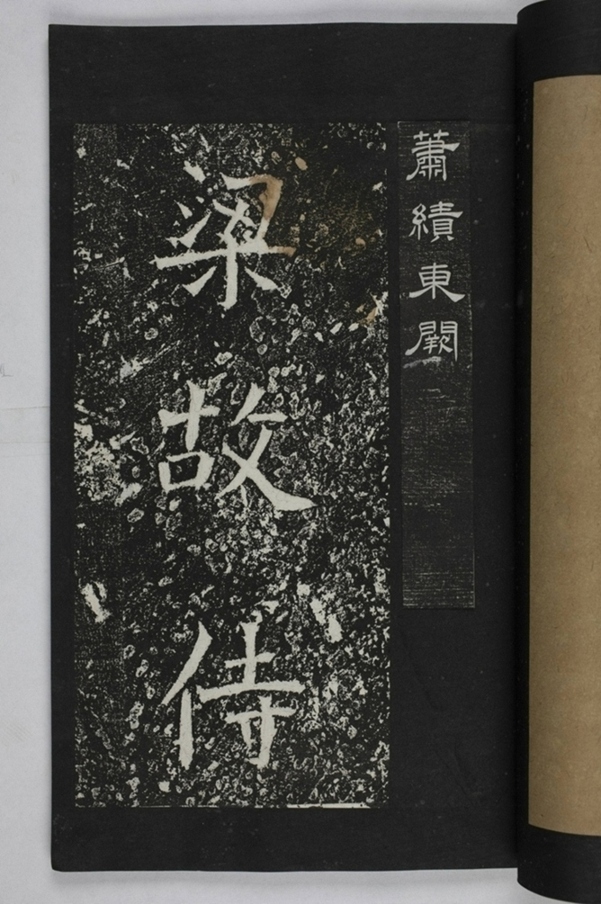 蕭績東闕
梁故侍